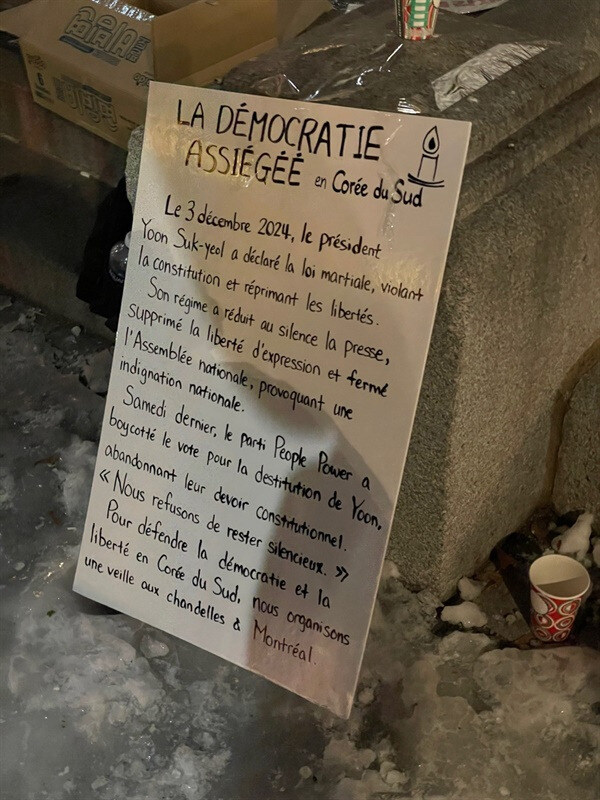 LA DÉMOCRATIE
ASSIÉGÉÉ en Corée du Sud
Le 3 décembre 2024, le président
Yoon Suk-yeol a déclaré la loi martiale, violant
la constitution et réprimant les libertés.
Son régime a réduit au silence la presse,
supprimé la liberté d'expression et fermé
l'Assemblée nationale, provoquant une
indignation nationale.
Samedi dernier, le parti People Power a
boycotté le vote pour la destitution de Yoon,
abandonnant leur devoir constitutionnel.
« Nous refusons de rester silencieux. »
Pour défendre la démocratie et la
liberté en Corée du Sud, nous organisons
une veille aux chandelles à Montréal.